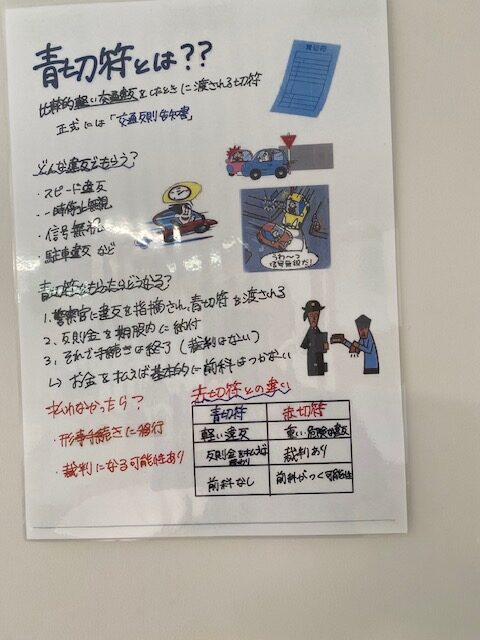 青切符とは??
青切符
比較的軽い交通違反をしたときに渡される切符
正式には「交通反則告知書」
どんな違反でもらう?
・スピード違反
・一時停止無視
・信号無視
・駐車違反 など
うわ〜っ
信号無視だ!
青切符をもらったらどうなる?
1. 警察官に違反を指摘され、青切符を渡される
2、反則金を期限内に納付
3、それで手続きは終了(裁判はない)
↳ お金を払えば基本的に前科はつかない
払わなかったら?
・刑事手続きに移行
・裁判になる可能性あり
赤切符との違い
青切符 赤切符
軽い違反 重い・危険な違反
反則金を払えば終わり 裁判あり
前科なし 前科がつく可能性